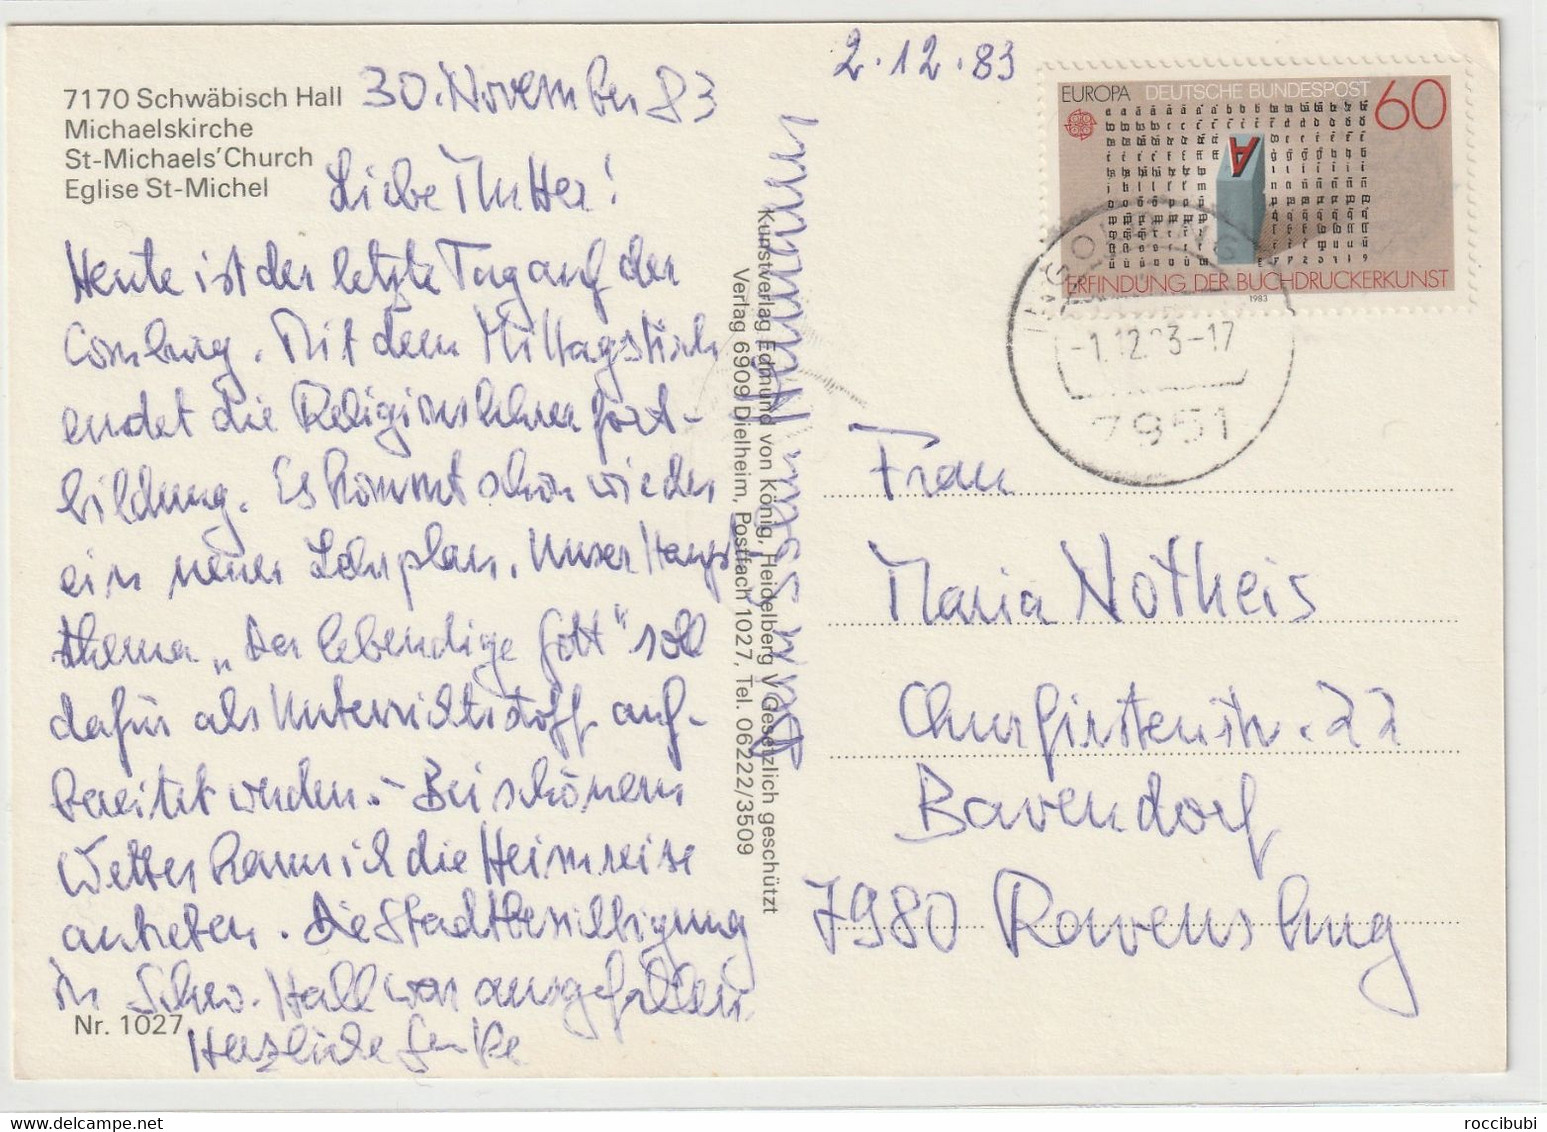 7170 Schwäbisch Hall
Michaelskirche
St-Michaels' Church
Eglise St-Michel
30. November 83
Liebe Mutter!
Heute ist der letzte Tag auf der
Comburg. Mit dem Mittagstisch
endet die Religionslehrerfort-
bildung. Es kommt schon wieder
ein neuer Lehrplan. Unser Haupt-
thema „Der lebendige Gott" soll
dafür als Unterrichtsstoff auf-
bereitet werden. – Bei schönem
Wetter kann ich die Heimreise
antreten. Die Stadtbesichtigung
in Schw. Hall war ausgefallen.
Herzliche
Nr. 1027
Kunstverlag Edmund von König, Heidelberg \/ Gesetzlich geschützt
Verlag 6909 Dielheim, Postfach 1027, Tel. 06222/3509
Dein Sohn
2.12.83
EUROPA DEUTSCHE BUNDESPOST 60
A
ERFINDUNG DER BUCHDRUCKERKUNST
1983
-1.12.83-17
7951
Frau
Maria Notheis
Churfirstenstr. 22
Bavendorf
7980 Ravensburg
www.delcampe.net
roccibubi